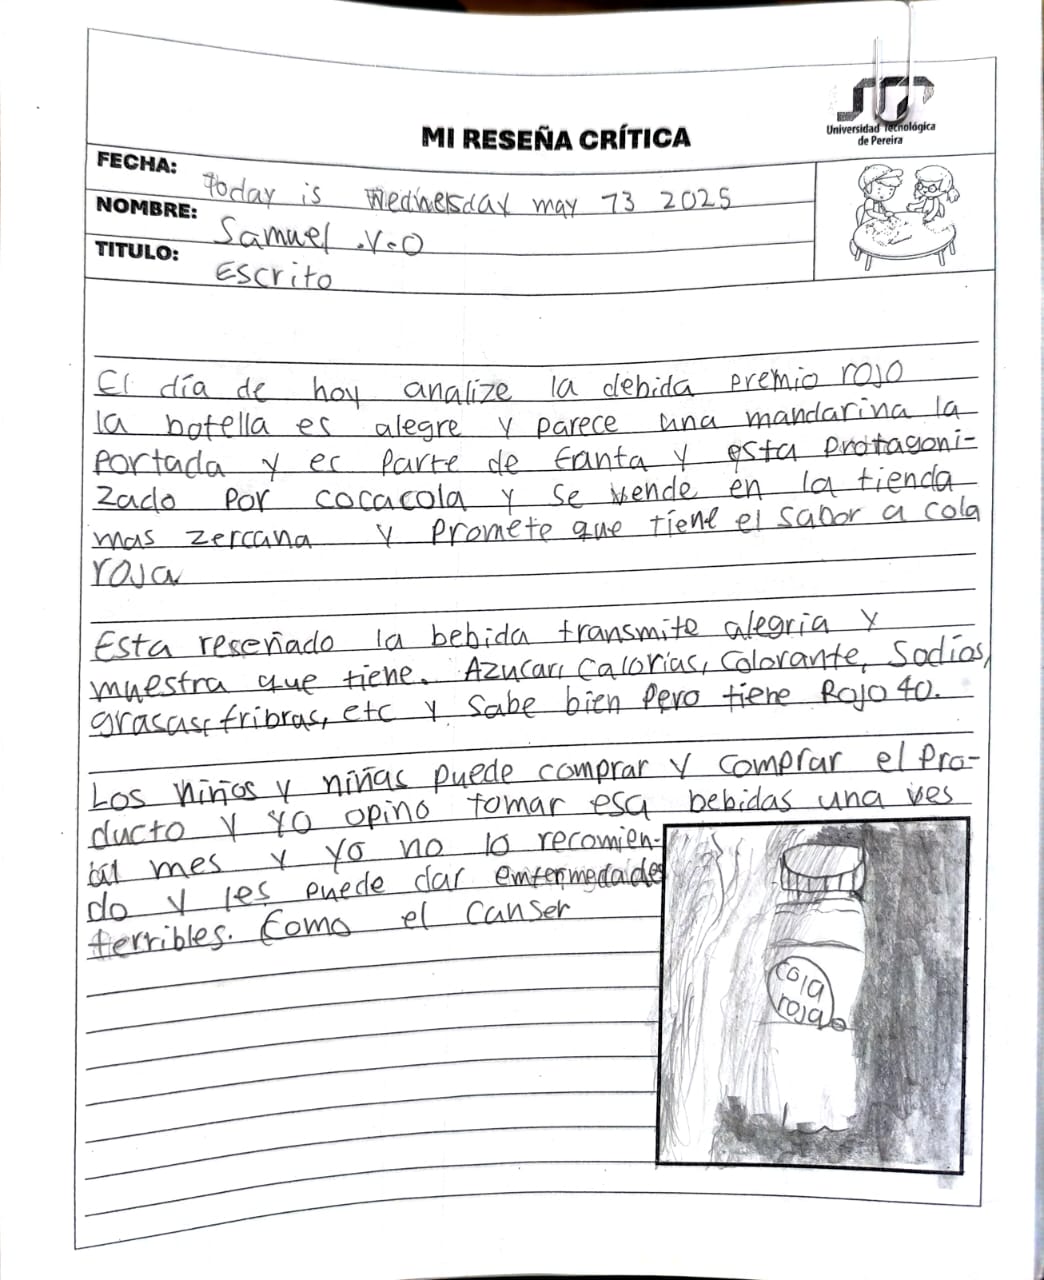 MI RESEÑA CRÍTICA
Universidad Tecnológica
de Pereira
FECHA: Today is Wednesday may 13 2025
NOMBRE: Samuel .V.O
TITULO: Escrito
El día de hoy analize la debida premio rojo
la botella es alegre y parece una mandarina la
portada y ec parte de fanta y esta protagoni-
zado por cocacola y se vende en la tienda
mas zercana y promete que tiene el sabor a cola
roja
Esta reseñado la bebida transmite alegria y
muestra que tiene. Azucar, Calorias, Colorante, Sodios,
grasas, fribras, etc y sabe bien pero tiene Rojo 40.
Los niños y niñas puede comprar y comprar el pro-
ducto y yo opino tomar esa bebidas una ves
al mes y yo no lo recomien-
do y les puede dar enfermedades
terribles. Como el Canser
cola
roja